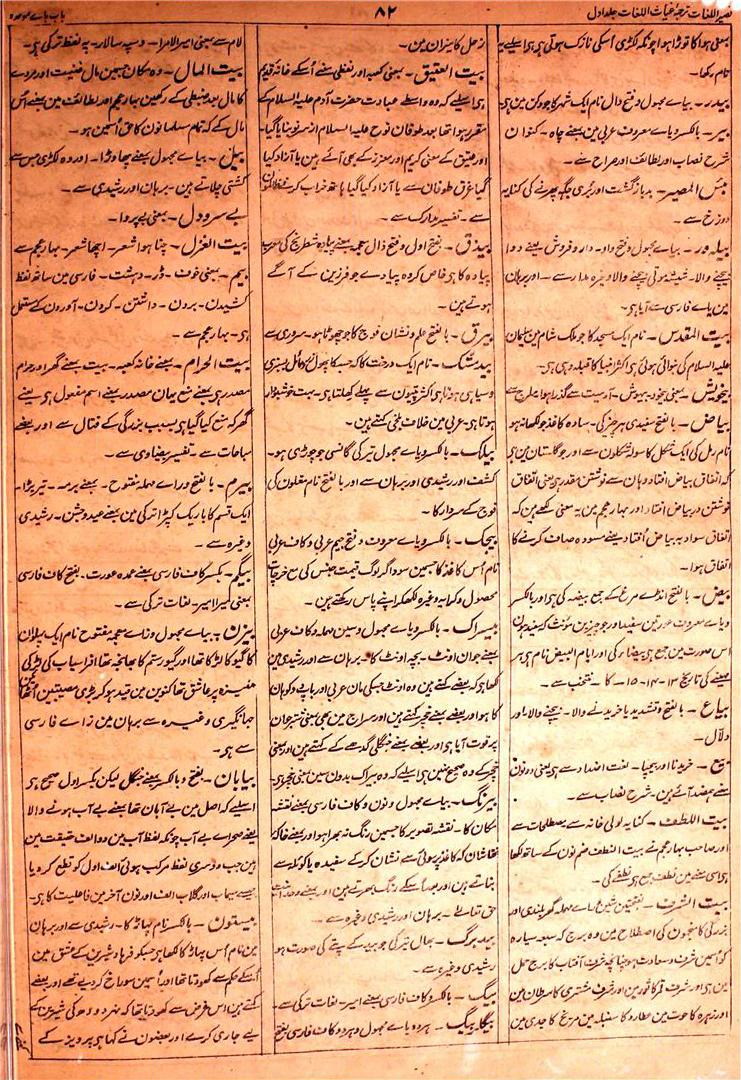 نصیر اللغات ترجمۂ غیاث اللغات جلد اول
۸۲
باب باے موحدہ
بمعنی ہوا کا توڑا ہوا چونکہ لکڑی اُسکی نازک ہوتی ہی اسلیے یہ
نام رکھا۔
بیدر۔ بیاے مجہول و فتح دال نام ایک شہر کا جو دکن مین ہی
بیر۔ بالکسر و یاے معروف عربی مین بمعنے چاہ۔ کنوان
شرح نصاب اور لطائف اور صراح سے۔
بئس المصیر۔ بد باز گشت اور بُری جگہ پھرنے کی کنایہ
دوزخ سے۔
بیلہ ور۔ بیاے مجہول و فتح واو۔ دارو فروش۔ یعنے دوا
بیچنے والا۔ شیشہ موتی بیچنے والا وغیرہ مدار سے۔ اور برہان
مین باے فارسی سے آیا ہی۔
بیت المقدس۔ نام ایک مسجد کا جو ملک شام مین سلیمان
علیہ السلام کی بنوائی ہوئی ہی اکثر انبیا کا قبلہ وہی ہی۔
بیخویش۔ بمعنی بیخود۔ بیہوش۔ آدمیت سے گذرا ہوا
بیاض۔ بالفتح سفیدی ہر چیز کی۔ سادہ کاغذ جو لکھا نہو
نام رمل کی ایک شکل کا سولہ شکلون سے اور جو گلستان مین ہی
کہ اتفاق بیاض افتاد وہان سے نوشتن مقدر ہی یعنی اتفاق
نوشتن در بیاض افتاد اور بہار عجم مین یہ معنی لکھے ہین کہ
اتفاق سواد بہ بیاض افتاد یعنے مسودہ صاف کرنے کا
اتفاق ہوا۔
بیض۔ بالفتح انڈے مرغ کے جمع بیضہ کی ہی اور بالکسر
و یاے معروف عورتین سفید اور جو چیزین مونث کہ سفید ہون
اس صورت مین جمع ہی بیضاء کی اور ایام البیض نام ہی ہر
مہینے کی تاریخ ۱۳-۱۴-۱۵ کا۔ منتخب سے۔
بیاع۔ بالفتح و تشدید یا خریدنے والا۔ بیچنے والا اور
دلال۔
بیع۔ خریدنا اور بیچنا۔ لغت اضداد سے ہی یعنی دونون
معنے بعضد آئے ہین۔ شرح نصاب سے۔
بیت اللطف۔ کنایہ لولی خانہ سے مصطلحات سے
اور صاحب بہار عجم نے بیت النطف ضم نون کے ساتھ لکھا
ہی اس معنے مین نطف جمع ہی نطفے کی۔
بیت الشرف۔ بفتحتین شین و راے مہملہ گھر بلندی اور
بزرگی کا نجوم کی اصطلاح مین وہ برج کہ سبعہ سیارہ
کو اُسمین شرف و سعادت ہو چنانچہ شرف آفتاب کا برج حمل
مین ہی اور شرف قمر کا ثور مین اور شرف مشتری کا سرطان مین
اور زہرہ کا حوت مین عطارد کا سنبلہ مین مریخ کا جدی مین
زحل کا میزان مین۔
بیت العتیق۔ بمعنی کعبہ اور لفظی معنے اُسکے خانہ قدیم
ہی اسلیے کہ وہ واسطے عبادت حضرت آدم علیہ السلام کے
مقرر ہوا تھا بعد طوفان نوح علیہ السلام از سر نو بنایا گیا۔
اور عتیق کے معنی کریم اور معزز کے بھی آئے ہین یا آزاد کیا
گیا غرق طوفان سے یا آزاد کیا گیا ہاتھ خراب کرنے ظالمون
سے۔ تفسیر مدارک سے۔
بیذق۔ بفتح اول و فتح ذال معجمہ بمعنے پیادہ شطرنج کی معرب
پیادہ کا ہی خاص کر وہ پیادے جو فرزین کے آگے
ہوتے ہین۔
بیرق۔ بالفتح علم و نشان فوج کا جو چھوٹا ہو۔ سروری سے
بیدمشک۔ نام ایک درخت کا کہ جسکا پھول
وسیا ہی ہوتا ہی اکثر پتیون سے پہلے کھلتا ہی۔ بہت خوشبودار
ہوتا ہی۔ عربی مین خلاف بلخی کہتے ہین۔
بیلک۔ بالکسر و یاے مجہول تیر کی گانسی جو چوڑی ہو۔
کشف اور رشیدی اور برہان سے اور بالفتح نام مغلون کی
فوج کے سردار کا۔
بیجک۔ بالکسر و یاے معروف و فتح جیم عربی و کاف عربی
نام اُس کاغذ کا جسمین سوداگر لوگ قیمت جنس کی مع خرچات
محصول و کرایہ وغیرہ لکھکر اپنے پاس رکھتے ہین۔
بیسراک۔ بالکسر و یاے مجہول و سین مہملہ و کاف عربی
بمعنے جوان اونٹ۔ بچہ اونٹ کا۔ برہان سے اور رشیدی مین
لکھا ہی کہ بعضے کہتے ہین وہ اونٹ جسکی مان عربی اور باپ دو کوہان
کا ہو اور بعضے بمعنے خچر کہتے ہین اور سراج مین بھی بمعنی شتر جوان
پر قوت آیا ہی اور بعضے بمعنے جنگلی گدھے کے کہتے ہین اور بمعنی
خچر کے وہ صحیح نہین ہی اسلیے کہ وہ بیراک بدون سین بمعنی خچر ہی۔
بیرنگ۔ بیاے مجہول و نون و کاف فارسی بمعنے نقشہ
مکان کا۔ نقشہ تصویر کا جسمین رنگ نہ بھرا ہو اور بمعنے خاکہ
نقاشان کہ کاغذ پر سوئی سے نشان کر کے سفیدہ یا کوئلہ سے
بناتے ہین اور بعد اسکے رنگ بھرتے ہین اور بمعنے وحدانیت
حق تعالے۔ برہان اور رشیدی وغیرہ سے۔
بید برگ۔ بھال تیر کی جو بید کے پتے کی صورت ہو
رشیدی وغیرہ سے۔
بیگ۔ بالکسر و کاف فارسی بمعنے امیر۔ لغات ترکی سے۔
بیگلر بیگ۔ ہر دو یاے مجہول و ہر دو کاف فارسی بفتح
لام سے بمعنی امیر الامرا۔ و سپہ سالار۔ یہ لفظ ترکی ہی۔
بیت المال۔ وہ مکان جسمین مال غنیمت اور مردے
کا مال بعد ضبطی کے رکھین بہار عجم اور لطائف مین بمعنے اُس
مال کے کہ تمام مسلمانون کا حق اُسمین ہو۔
بیل۔ بیاے مجہول بمعنے پھاوڑا۔ اور وہ لکڑی جس سے
کشتی چلاتے ہین۔ برہان اور رشیدی سے۔
بے سر و دل۔ بمعنی بے پروا۔
بیت الغزل۔ چنا ہوا شعر۔ اچھا شعر۔ بہار عجم سے
بیم۔ بمعنی خوف۔ ڈر۔ دہشت۔ فارسی مین ساتھ لفظ
کشیدن۔ بردن۔ داشتن۔ کردن۔ آوردن کے مستعمل
ہی۔ بہار عجم سے۔
بیت الحرام۔ بمعنے خانہ کعبہ۔ بیت بمعنے گھر اور حرام
مصدر ہی بمعنے منع یہان مصدر بمعنے اسم مفعول ہی یعنے
گھر کہ منع کیا گیا ہی بسبب بزرگی کے قتال سے اور بعضے
مباحات سے۔ تفسیر بیضاوی سے۔
بیرم۔ بالفتح و راے مہملہ مفتوح۔ بمعنے برمہ۔ تیر پڑا۔
ایک قسم کا باریک کپڑا ترکی مین بمعنے عید و جشن۔ رشیدی
وغیرہ سے۔
بیگم۔ بکسر کاف فارسی بمعنے عمدہ عورت۔ بفتح کاف فارسی
بمعنی گیرا امیر۔ لغات ترکی سے۔
بیزن۔ بیاے مجہول و زاے معجمہ مفتوح نام ایک پہلوان
کا گیو کا لڑکا تھا اور گیو رستم کا بھانجہ تھا افراسیاب کی لڑکی
منیزہ پر عاشق تھا کنوین مین قید ہو کر بڑی مصیبتین اُٹھائین
جہانگیری وغیرہ سے برہان مین زاے فارسی
سے ہی۔
بیابان۔ بفتح و بالکسر بمعنے جنگل لیکن بکسر اول صحیح ہی
اسلیے کہ اصل مین بے آبان تھا بمعنے بے آب ہونے والا
یعنے صحراے بے آب چونکہ لفظ آب مین دو الف حقیقت مین
ہین جب دوسری لفظ مرکب ہوئی الف اول کو قطع کر دیا
جیسے سیماب اور گلاب الف اور نون آخر مین فاعلیت کا ہی۔
بیستون۔ بالکسر نام پہاڑ کا۔ رشیدی سے اور برہان
مین نام اُس پہاڑ کا لکھا ہی جسکو فرہاد شیرین کے عشق مین
اُسکے حکم سے کھودتا تھا اور اُسمین سوراخ کر دیے تھے اور بعضے
کہتے ہین اس غرض سے کھودتا تھا کہ نہر دودھ کی شیرین کے
لیے جاری کرے اور بعضون نے کہا ہی پرویز کے